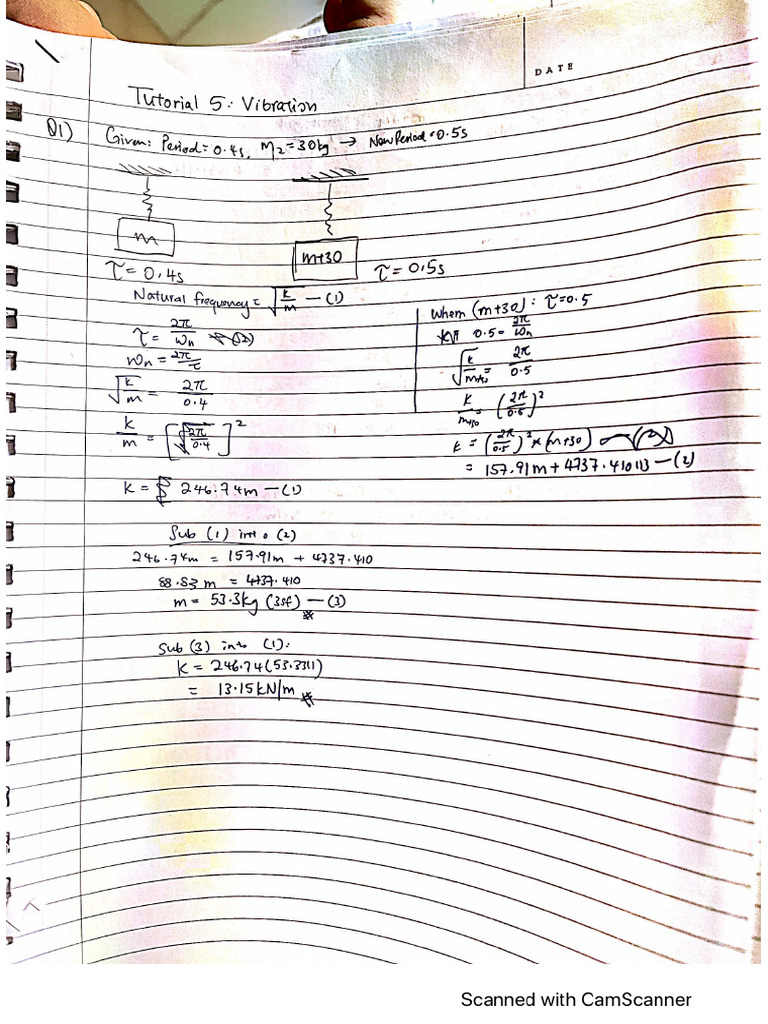 DATE
Tutorial 5: Vibration
Q1) Given: Period = 0.4s, M₂ = 30kg → New Period = 0.5s
m
m+30
τ = 0.4s
τ = 0.5s
Natural frequency = √(k/m) — (1)
τ = 2π/ωn
ωn = 2π/τ
√(k/m) = 2π/0.4
k/m = [2π/0.4]²
k = 246.74m — (1)
When (m+30): τ=0.5
0.5 = 2π/ωn
√(k/m+30) = 2π/0.5
k/m+30 = (2π/0.5)²
k = (2π/0.5)² × (m+30)
= 157.91m + 4737.410113 — (2)
Sub (1) into (2)
246.74m = 157.91m + 4737.410
88.83m = 4737.410
m = 53.3kg (3sf) — (3)
Sub (3) into (1):
k = 246.74(53.3311)
= 13.15kN/m
Scanned with CamScanner